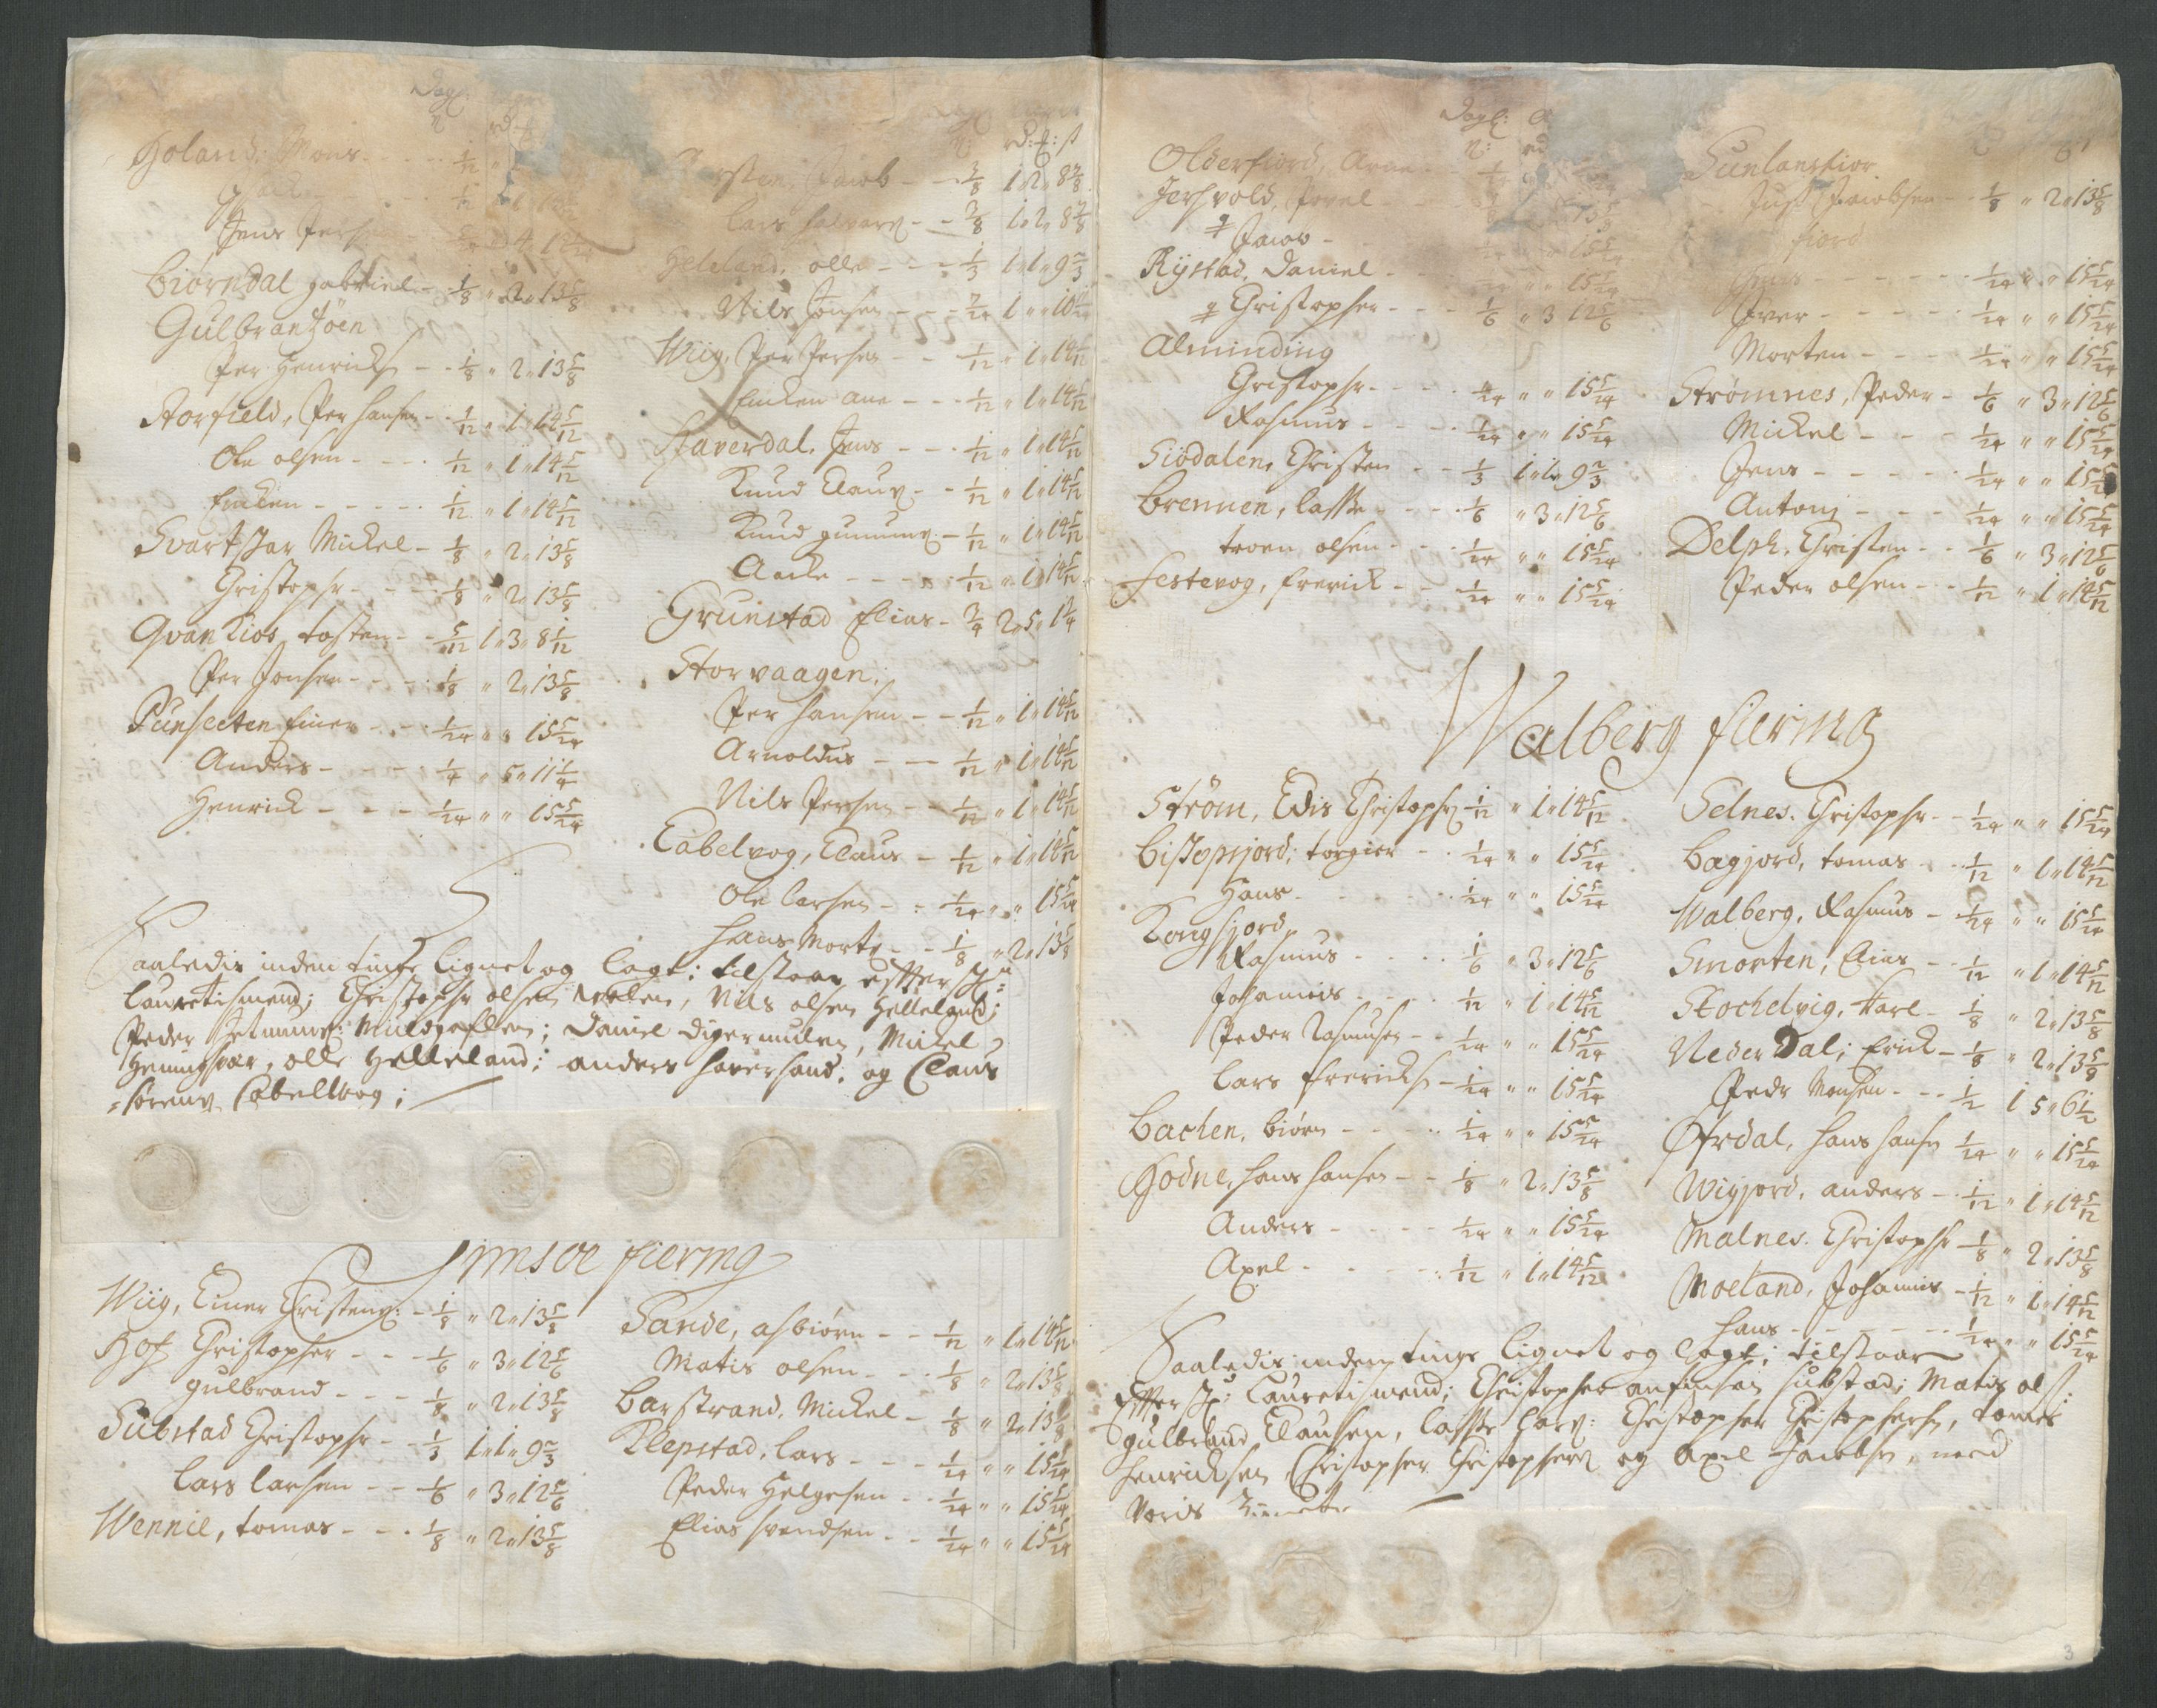 Dagl:
Holand: Mons - - - 1/12 "
Jens Pers
Biørndal gabriel - 1/8 " 2 " 13 5/8
Gulbrantzøen
Per Henricks - - 1/8 " 2 " 13 5/8
Storfield, Per hansen - - 1/12 " 1 " 14 5/12
Ole olsen - - - 1/12 " 1 " 14 5/12
Einken - - - - 1/12 " 1 " 14 5/12
Svartskar Mickel - 1/8 " 2 " 13 5/8
Christophr - - - 1/8 " 2 " 13 5/8
Qvankios tosten - - 5/12 1 " 3 " 8 1/12
Per Jonsen - - - 1/8 " 2 " 13 5/8
Punsletten Einer - - - 1/24 " " 15 5/24
Anders - - - - 1/4 " 5 " 11 1/4
Henrick - - - 1/24 " " 15 5/24
rd: : ß
Jacob - - 3/8 1 " 2 " 8 7/8
Lars halvars - - 3/8 1 " 2 " 8 7/8
Heleland, olle - - - 1/3 1 " 1 " 9 2/3
Nils Jonsen - - - 7/24 1 " " 10
Wiig, Per Persen - - 1/12 " 1 " 14 5/12
Einken ane - - - 1/12 " 1 " 14 5/12
Staverdal, Jens - - - 1/12 " 1 " 14 5/12
Knud Claus - - 1/12 " 1 " 14 5/12
Knud gunnars - 1/12 " 1 " 14 5/12
Aacke - - - - 1/12 " 1 " 14 5/12
Grunstad Elias - 3/4 2 " 5 " 1 1/4
Storvaagen;
Per hansen - - 1/12 " 1 " 14 5/12
Arnoldus - - - 1/12 " 1 " 14 5/12
Nils Persen - - 1/12 " 1 " 14 5/12
Cabelvog, Claus - 1/12 " 1 " 14 5/12
Ole larsen - - 1/24 " " 15 5/24
hans Morts - - 1/8 " 2 " 13 5/8
Saaledis inden tinge lignet og lagt; tilstaar effterschr:
Laurettismend; Christophr olsen , Nils olsen Hellelgud;
Peder ; Daniel Digermulen, Mickel
Heningsvær, olle Helleland; anders haversand; og Claus
sørens Cabelvog;
Jimsøe fiering
Wiig, Einer Christens: - 1/8 " 2 " 13 5/8
Hof Christopher - - - 1/6 " 3 " 12 5/6
gulbrand - - - 1/8 " 2 " 13 5/8
Substad Christophr - - 1/3 1 " 1 " 9 2/3
Lars larsen - - 1/6 " 3 " 12 5/6
Wennie, tomas - - - 1/8 " 2 " 13 5/8
Sande, asbiørn - - 1/12 " 1 " 14 5/12
Matis olsen - - - 1/8 " 2 " 13 5/8
Barstrand, Mickel - 1/8 " 2 " 13 5/8
Klepstad, lars - - - 1/24 " " 15 5/24
Peder Helgesen - - 1/24 " " 15 5/24
Elias svendsen - - 1/24 " " 15 5/24
Dagl:
Olderfiord, Arne
Jershvold, Povel - - -
Jacob - 15 5/24
Rystad, Daniel - - 15 5/24
Christopher - - - 1/6 " 3 12 5/6
Alminding
Christophr - - - 1/24 " " 15 5/24
Rasmus - - - - 1/24 " " 15 5/24
Siødalen, Christen - - 1/3 1 " 1 " 9 2/3
Brennen, lasse - - - 1/6 " 3 " 12 5/6
troen olsen - - - 1/24 " " 15 5/24
Festevog, frerick - - 1/24 " " 15 5/24
Sunlansfior
Just Jacobsen - - 1/8 " 2 " 13 5/8
fiord
- - - - - 1/24 " " 15 5/24
Iver - - - - - 1/24 " " 15 5/24
Morten - - - 1/24 " " 15 5/24
Strømnes, Peder - 1/6 " 3 " 12 5/6
Mickel - - - 1/24 " " 15 5/24
Jens - - - - - 1/24 " " 15 5/24
Antonj - - - 1/24 " " 15 5/24
Delph, Christen - - 1/6 " 3 " 12 5/6
Peder olsen - - 1/12 " 1 " 14 5/12
Walberg fiering
Strøm, Edis Christophs 1/12 " 1 " 14 5/12
Bispsjord; torgier - - 1/24 " " 15 5/24
Hans - - - - - 1/24 " " 15 5/24
Kongsjord,
Rasmus - - - - 1/6 " 3 " 12 5/6
Johannis - - - - 1/12 " 1 " 14 5/12
Peder Rasmusen - - 1/24 " " 15 5/24
Lars frericks - 1/24 " " 15 5/24
Bachen, biørn - - - - 1/24 " " 15 5/24
Hodne, hans hansen - - 1/8 " 2 " 13 5/8
Anders - - - - - 1/24 " " 15 5/24
Axel - - - - - 1/12 " 1 " 14 5/12
Selnes, Christophr - - 1/24 " " 15 5/24
Bagjord, tomas - - 1/12 " 1 " 14 5/12
Walberg, Rasmus - 1/24 " " 15 5/24
Smorten, Elias - - 1/12 " 1 " 14 5/12
Stochelvig, Karl - 1/8 " 2 " 13 5/8
Nederdal; Erick - 1/8 " 2 " 13 5/8
Pedr Monsen - - 1/2 1 5 " 6 1/2
Øfrdal, hans hansn 1/24 " " 15 5/24
Wigjord, anders - 1/12 " 1 " 14 5/12
Malnes, Christophr 1/8 " 2 " 13 5/8
Moeland, Johannis - 1/12 " 1 " 14 5/12
hans - - - - - 1/24 " " 15 5/24
Saaledis inden tinge lignet og lagt; tilstaar
Effterschr: Laurettismend; Christopher anfinsen substad; Matis ols:
gulbrand Clausen, lasse lars: Christopher Christophersn, tomes
henricksen, Christopher Christophers og Axel Jacobsn, med
voris
3